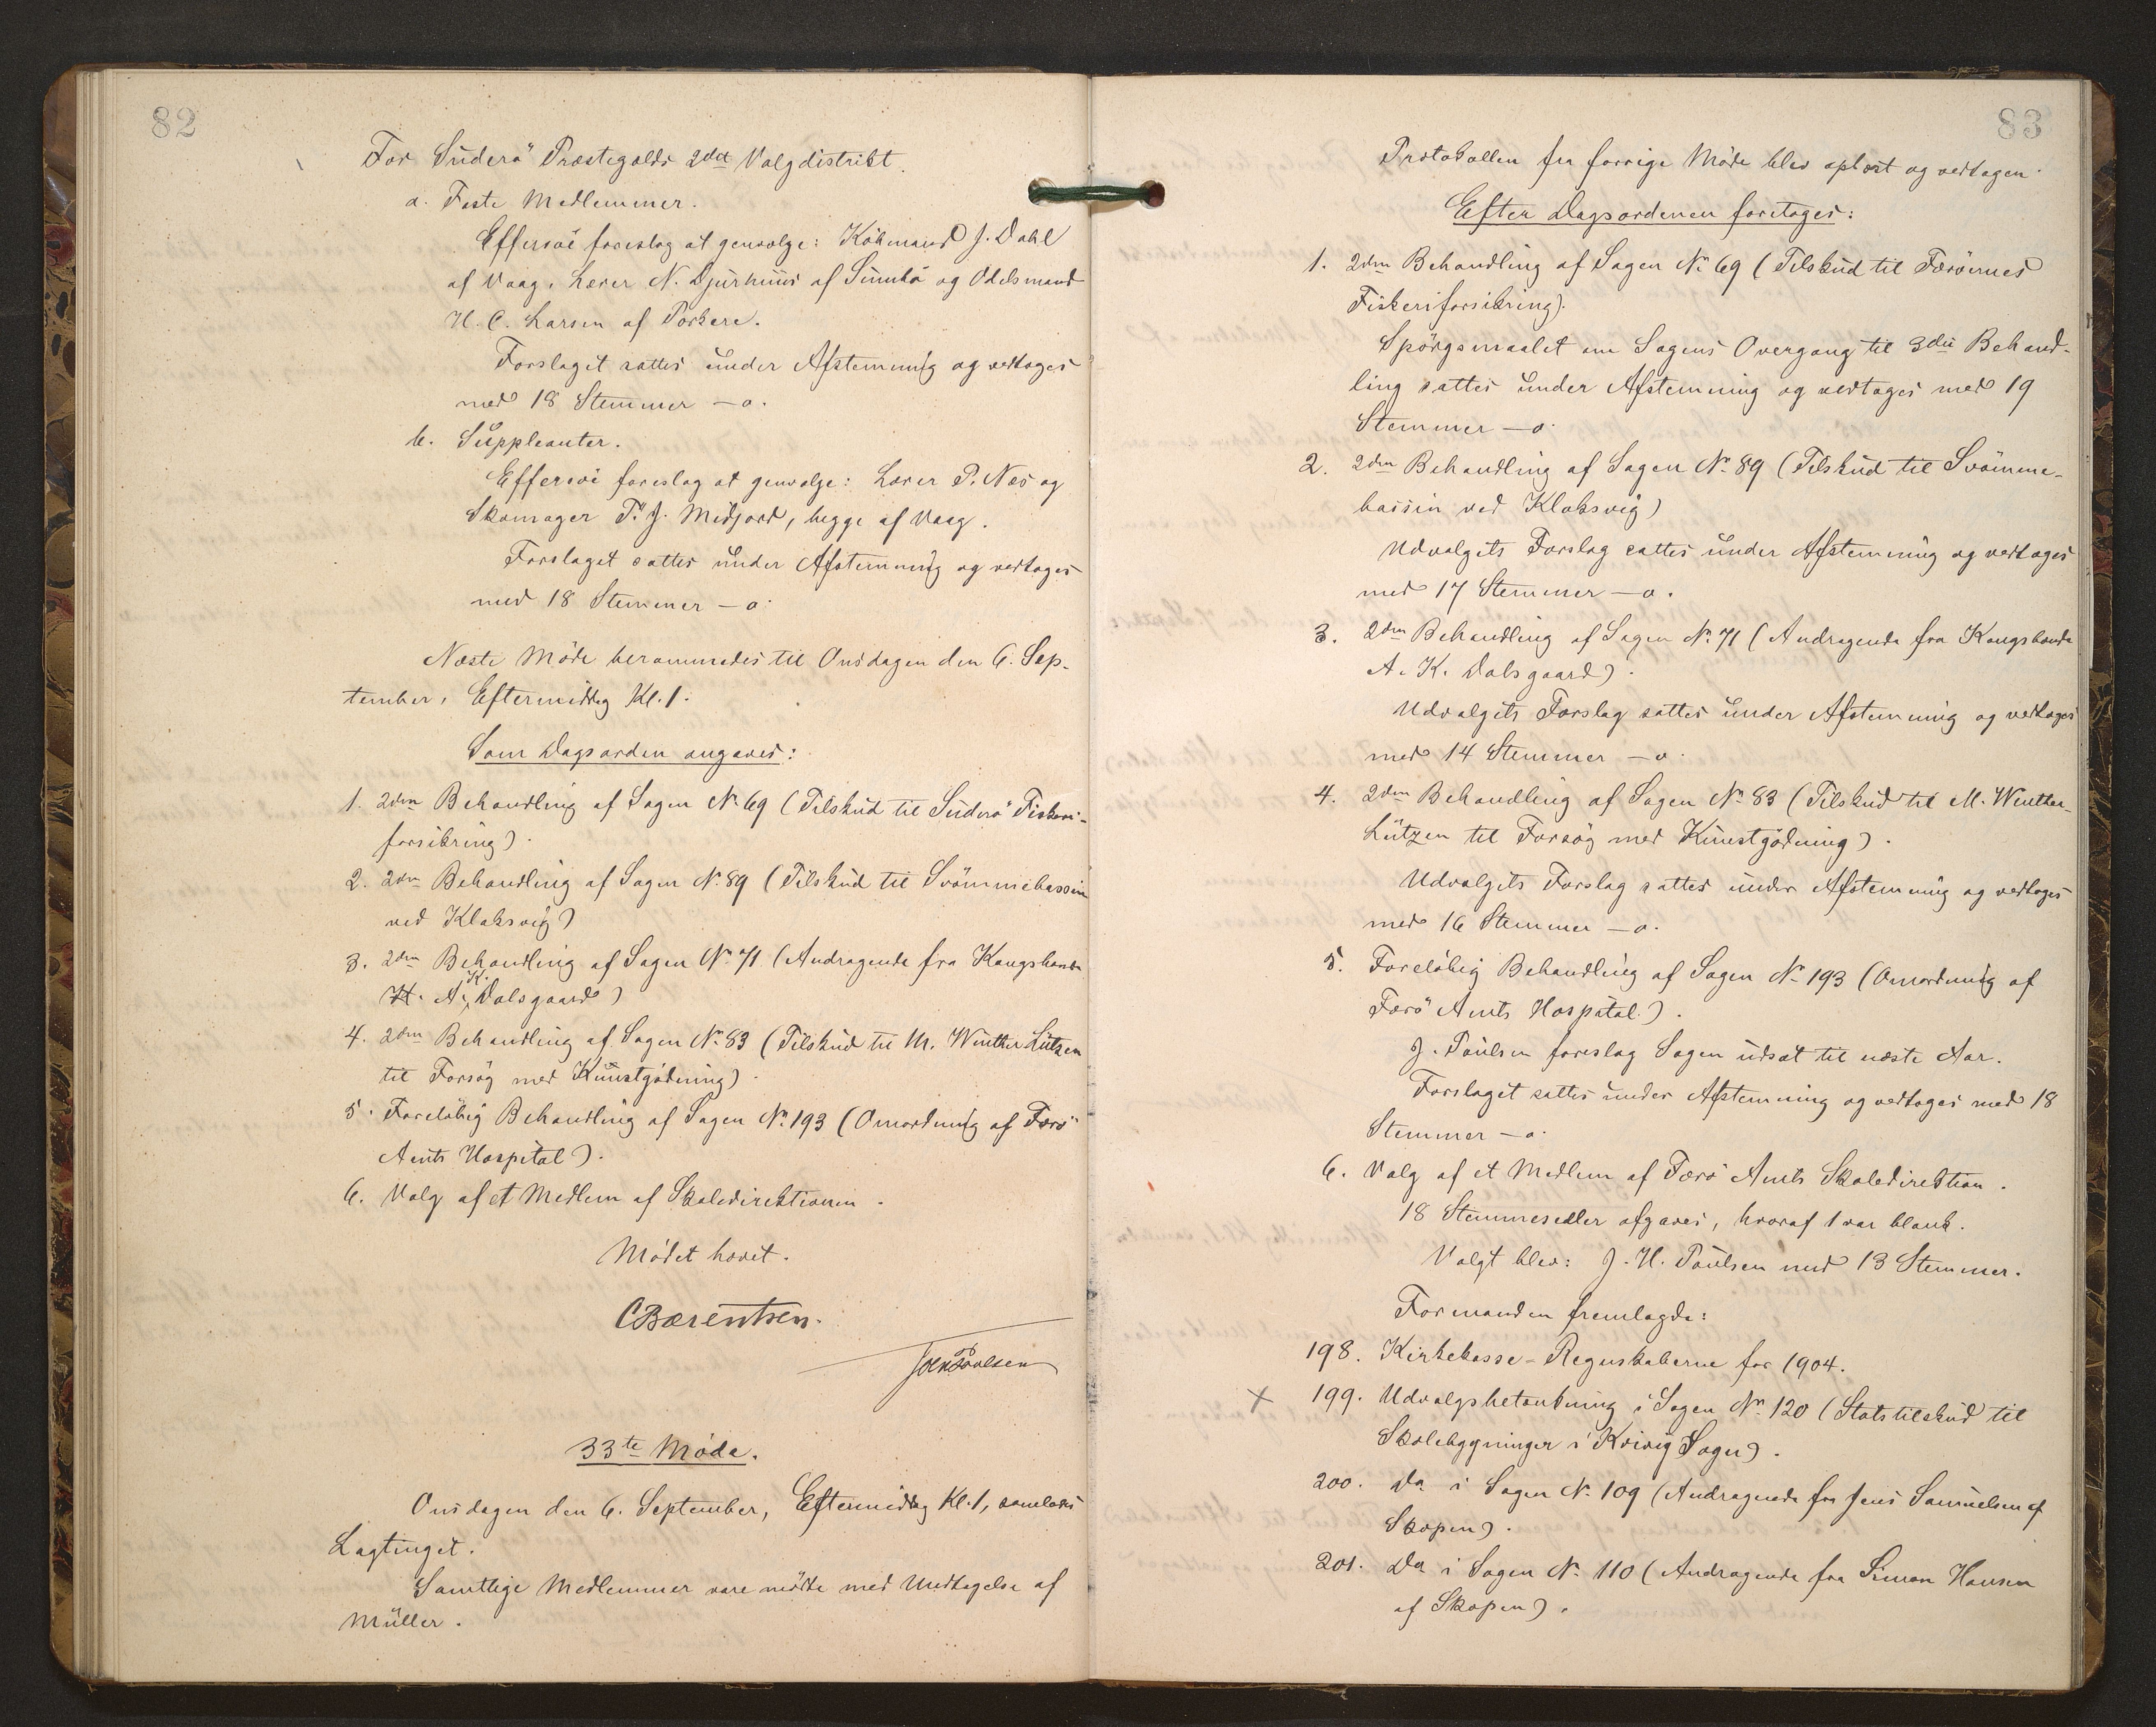 82
For Suderö Præstegælds 2det Valgdistrikt.
a. Faste Medlemmer.
Effersöe foreslog at genvælge: Köbmand J. Dahl
af Vaag, Lærer N. Djurhuus af Sumbö og Odelsmand
H. C. Larsen af Porkere.
Forslaget sattes under Afstemning og vedtoges
med 18 Stemmer – o.
b. Suppleanter.
Effersöe foreslog at genvælge: Lærer P. Næs og
Skomager P. J. Midjord, begge af Vaag.
Forslaget sattes under Afstemning og vedtoges
med 18 Stemmer – o.
Næste Möde berammedes til Onsdagen den 6. Sep-
tember, Eftermiddag Kl. 1.
Som Dagsorden angaves:
1. 2den Behandling af Sagen No 69 (Tilskud til Suderö Fiskeri-
forsikring).
2. 2den Behandling af Sagen No 89 (Tilskud til Svömmebassin
ved Klaksvig)
3. 2den Behandling af Sagen No 71 (Andragende fra Kongsbonde
H. A. K. Dalsgaard)
4. 2den Behandling af Sagen No 83 (Tilskud til M. Winther Lützen
til Forsög med Kunstgödning)
5. Forelöbig Behandling af Sagen No 193 (Omordning af Færö
Amts Hospital).
6. Valg af et Medlem af Skoledirektionen.
Mödet hævet.
CBærentsen.
JohPoulsen
33te Möde.
Onsdagen den 6. September, Eftermiddag Kl. 1, samledes
Lagtinget.
Samtlige Medlemmer vare mödte med Undtagelse af
Müller.
83
Protokollen fra forrige Möde blev oplæst og vedtagen.
Efter Dagsordenen foretoges:
1. 2den Behandling af Sagen No 69 (Tilskud til Færöernes
Fiskeriforsikring).
Spörgsmaalet om Sagens Overgang til 3die Behand-
ling sattes under Afstemning og vedtoges med 19
Stemmer – o.
2. 2den Behandling af Sagen No 89 (Tilskud til Svömme-
bassin ved Klaksvig)
Udvalgets Forslag sattes under Afstemning og vedtoges
med 17 Stemmer – o.
3. 2den Behandling af Sagen No 71 (Andragende fra Kongsbonde
A. K. Dalsgaard).
Udvalgets Forslag sattes under Afstemning og vedtoges
med 14 Stemmer – o.
4. 2den Behandling af Sagen No 83 (Tilskud til M. Winther-
Lützen til Forsög med Kunstgödning).
Udvalgets Forslag sattes under Afstemning og vedtoges
med 16 Stemmer – o.
5. Forelöbig Behandling af Sagen No 193 (Omordning af
Færö Amts Hospital).
J. Poulsen foreslog Sagen udsat til næste Aar.
Forslaget sattes under Afstemning og vedtoges med 18
Stemmer – o.
6. Valg af et Medlem af Færö Amts Skoledirektion.
18 Stemmesedler afgaves, hvoraf 1 var blank.
Valgt blev: J. H. Poulsen med 13 Stemmer.
Formanden fremlagde:
198. Kirkekasse-Regnskaberne for 1904.
× 199. Udvalgsbetænkning i Sagen No 120 (Statstilskud til
Skolebygninger i Kvivig Sogn).
200. Do i Sagen No 109 (Andragende fra Jens Samuelsen af
Skopen).
201. Do i Sagen No 110 (Andragende fra Simon Hansen
af Skopen).